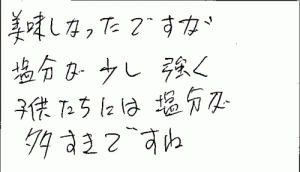 美味しなったですが
塩分が少し強く
子供たちには塩分が
多すぎですね